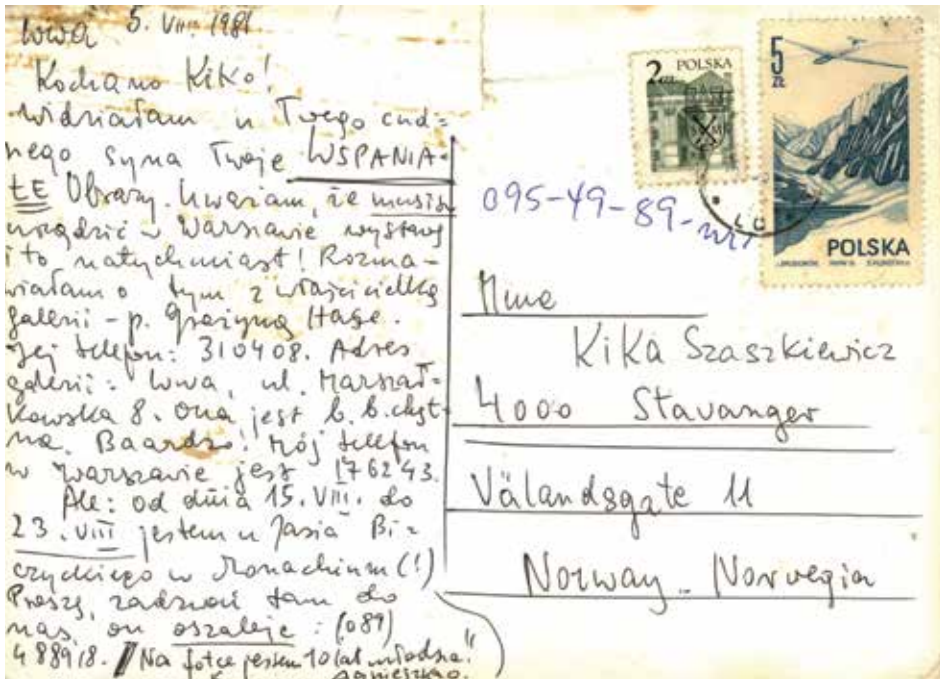 Wwa 5. VIII. 1981
Kochano Kiko!
Widziałam u Twego cud=
nego syna Twoje WSPANIA-
ŁE Obrazy. Uważam, że musisz
urządzić w Warszawie wystawę
i to natychmiast! Rozma-
wiałam o tym z właścicielką
galerii - p. Grażyną Hase.
Jej telefon: 310408. Adres
galerii: Wwa, ul. Marszał=
kowska 8. Ona jest b. b. chęt-
na. Baardzo! Mój telefon
w Warszawie jest 176243.
Ale: od dnia 15. VIII. do
23. VIII jestem u Jasia Bi=
czyckiego w Monachium (!)
Proszę, zadzwoń tam do
nas, on oszaleje: (089)
488918. Na fotce jestem 10 lat młodsza!
Agnieszka.
2 ZŁ POLSKA
S M
5 ZŁ
POLSKA
095-49-89-
Mme
Kika Szaszkiewicz
4000 Stavanger
Välandsgate 11
Norway - Norvegia